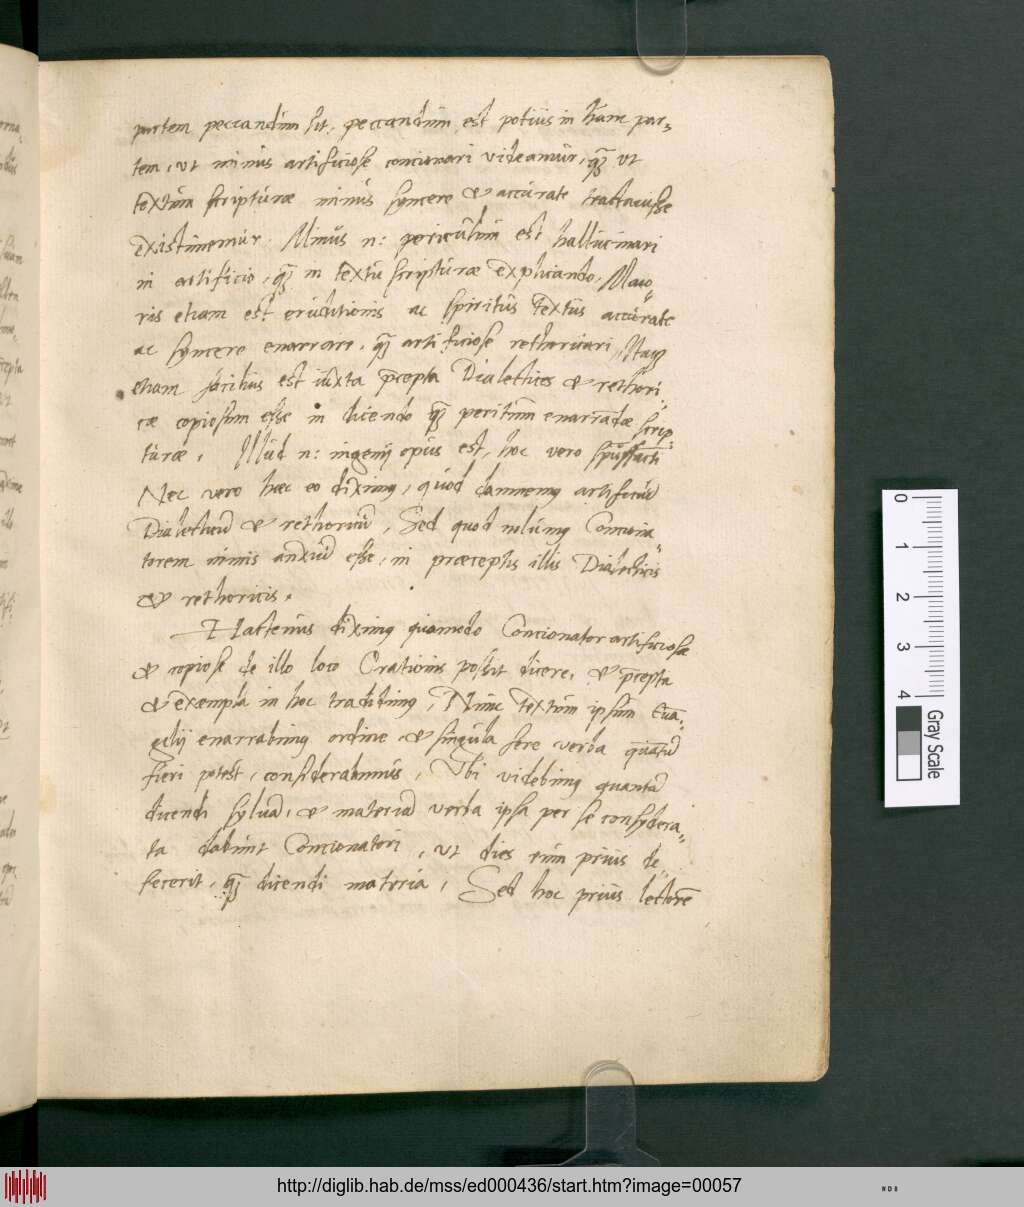 partem peccandum sit, peccandum est potius in hanc par-
tem, ut minus artificiose concionari videamur, quam ut
textum scripturæ minus syncere & accurate tractavisse
existimemur. Minus n: periculum est hallucinari
in artificio, quam in textu scripturæ explicando, Maio-
ris etiam est eruditionis ac spiritus textus accurate
ac syncere enarrare, quam artificiose rethoricari
etiam facilius est iuxta præcepta Dialectices & rethori-
cæ copiosum esse in dicendo quam peritum enarrandæ scrip-
turæ, Illud n: ingenij opus est, hoc vero
Nec vero hæc eo diximus, quod damnemus artificiū
Dialecticū & rethoricū, Sed quod nolumus Conciona
torem nimis anxiū esse, in præceptis illis Dialecticis
& rethoricis.
Hactenus diximus quomodo Concionator artificiose
& copiose de illo loco Orationis possit dicere, & præcepta
& exempla in hoc tradidimus, Nunc textum ipsum Eua-
gelij enarrabimus ordine, & singula fere verba quantū
fieri potest, considerabimus, Ubi videbimus quantā
dicendi syluā, & materiā verba ipsa per se consydera-
ta dabunt Concionatori, ut dies eum prius de
fecerit, quam dicendi materia, Sed hoc prius lectorē
0
1
2
3
4
Gray Scale
http://diglib.hab.de/mss/ed000436/start.htm?image=00057